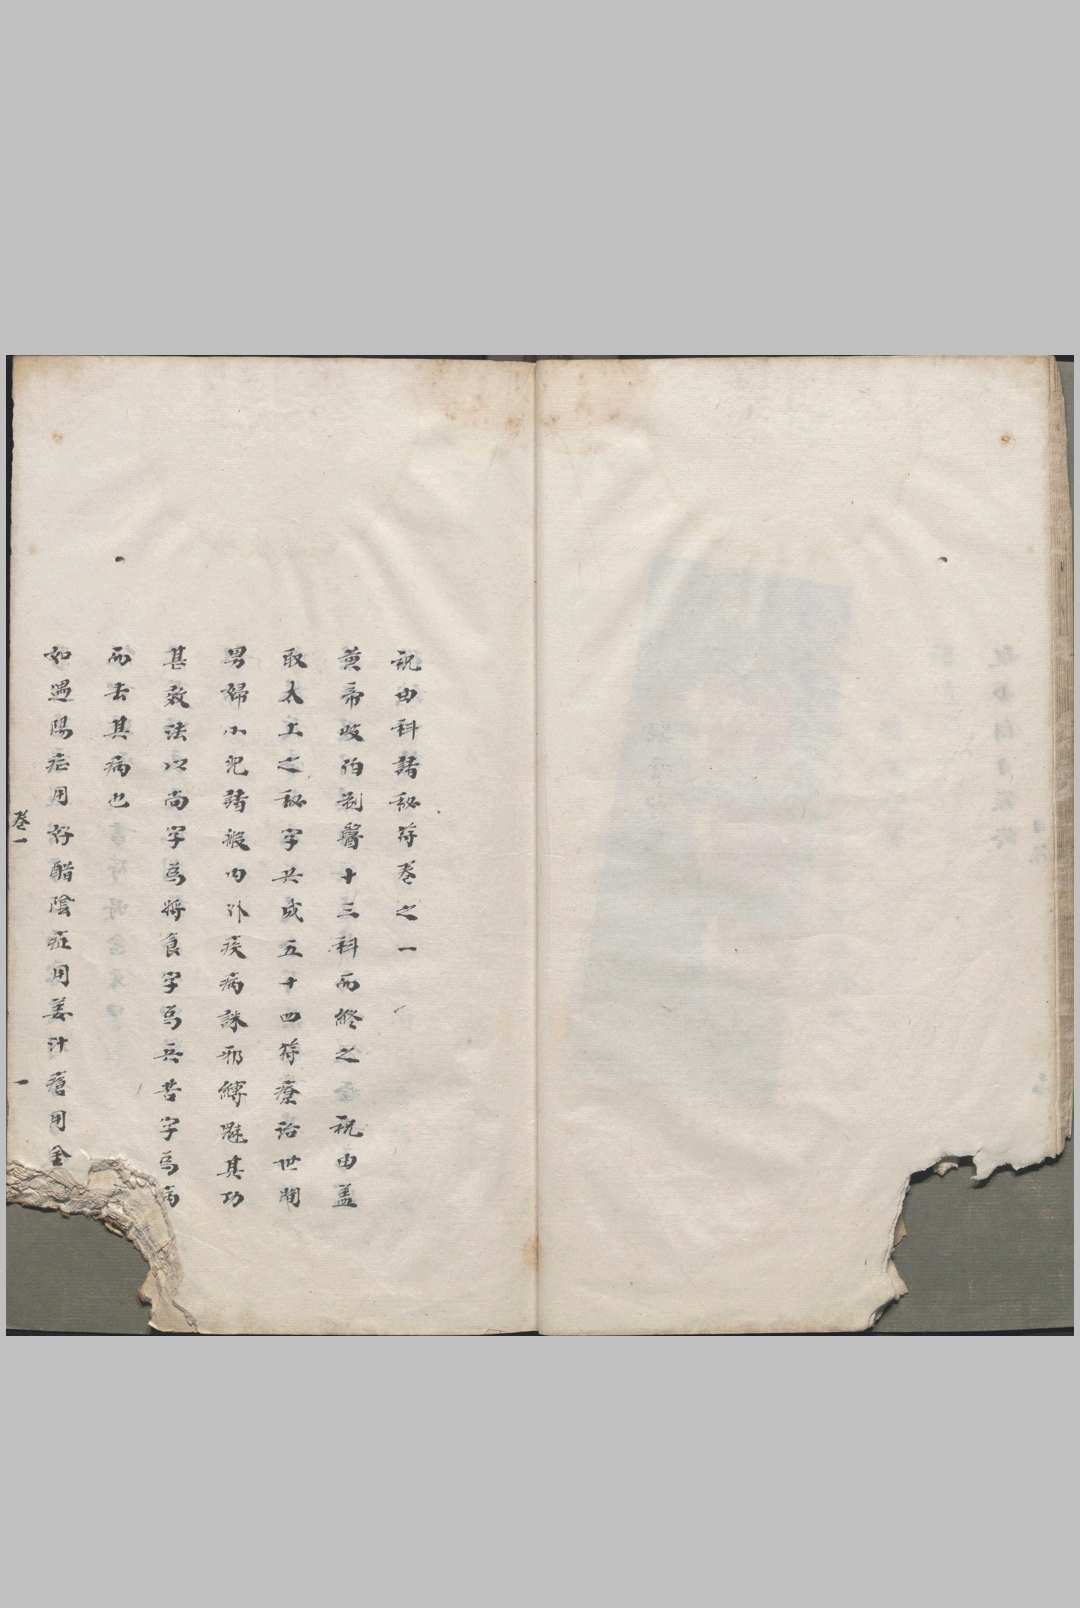 祝由科諸秘符卷之一
黄帝岐伯制醫十三科而終之祝由盖
取太上之秘字共成五十四符療治世間
男婦小兒諸般内外疾病誅邪縛魅其功
甚效法以尚字爲將食字爲兵苦字爲病
而去其病也
如遇陽症用好醋陰症用姜汁瘡用金
卷一
一